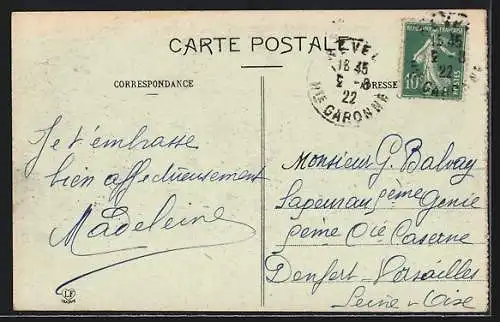 CARTE POSTALE
CORRESPONDANCE
ADRESSE
REVEL
18 45
2 - 8
22
Hte GARONNE
18 45
2 - 8
22
GARONNE
10c
Je t'embrasse
bien affectueusement
Madeleine
Monsieur G. Balvay
Sapeur au 5ème Génie
5ème Cie Caserne
Denfert-Versailles
Seine-et-Oise